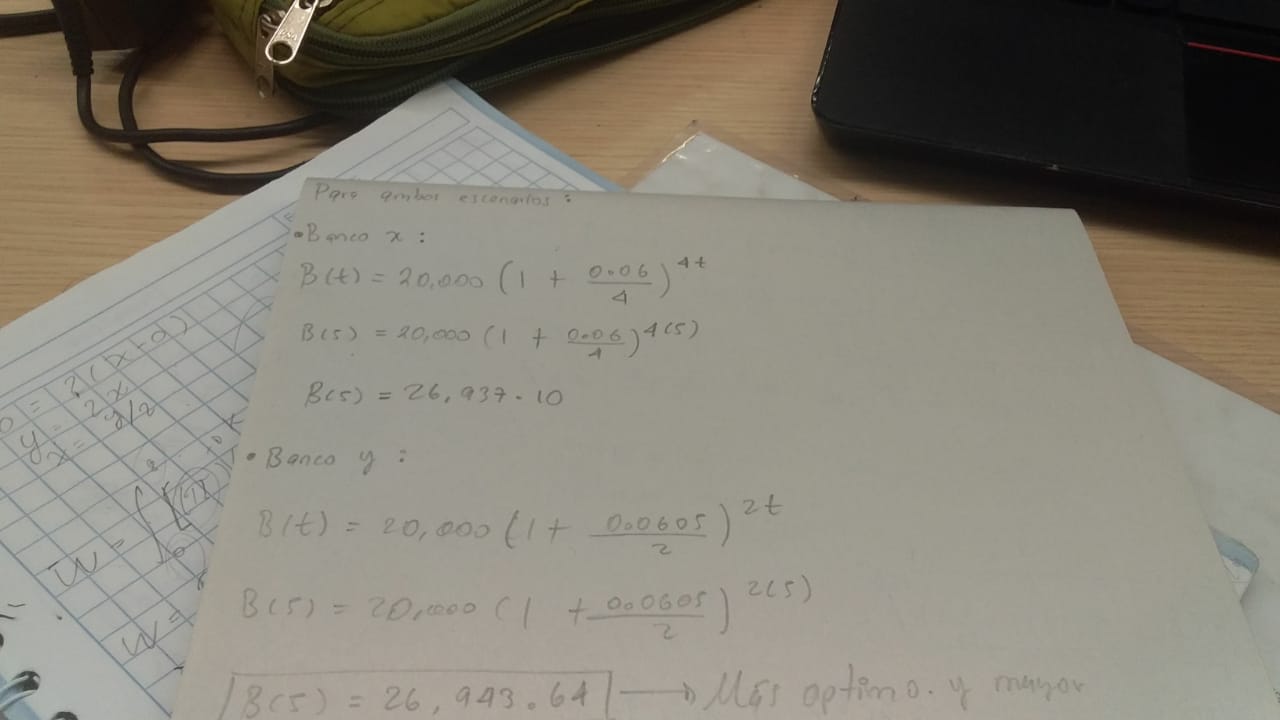 Para ambos escenarios:
• Banco x:
B(t) = 20,000 (1 + 0.06/4)^4t
B(5) = 20,000 (1 + 0.06/4)^4(5)
B(5) = 26,937.10
• Banco y:
B(t) = 20,000 (1 + 0.0605/2)^2t
B(5) = 20,000 (1 + 0.0605/2)^2(5)
B(5) = 26,943.64 → Más optimo. y mayor
y = 2x
x = y/2
W =
W =